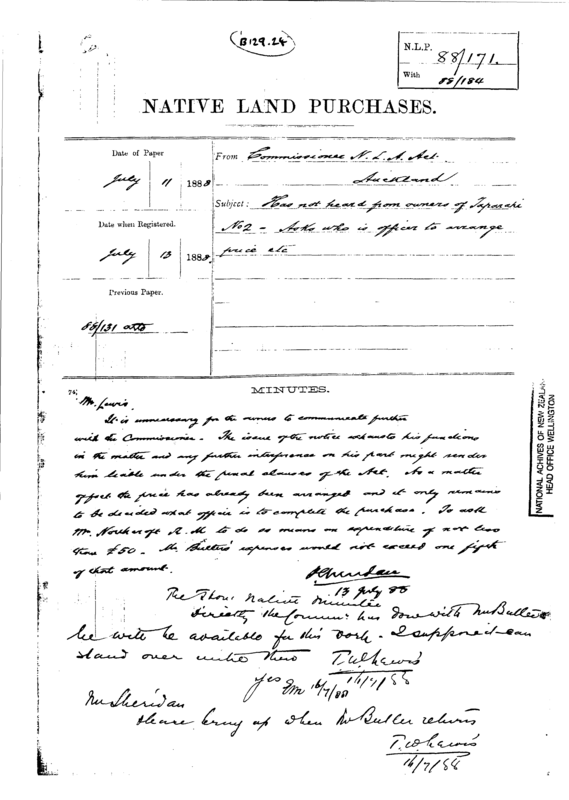 B129.24
N.L.P. 88/171.
With 88/184
NATIVE LAND PURCHASES.
Date of Paper
July 11 1888
From Commissioner N. L. A. Act.
Auckland
Subject: Has not heard from owners of Taparahi
No 2 - Asks who is officer to arrange
price etc
Date when Registered.
July 13 1888.
Previous Paper.
88/131 atto
MINUTES.
Mr. Lewis
It is unnecessary for the owners to communicate further
with the Commissioner. The issue of the notice exhausts his functions
in the matter and any further interference on his part might render
him liable under the penal clauses of the Act. As a matter
of fact the price has already been arranged and it only remains
to be decided what officer is to complete the purchase. To ask
Mr. Northcroft R.M. to do so means an expenditure of not less
than £50. Mr. Butler's expenses would not exceed one fifth
of that amount.
PSheridan
13 July 88
The Hon: Native Minister
Directly the Commn: has done with Mr Butler
he will be available for this work. I suppose it can
stand over until then
T.W.Lewis
16/7/88
yes
EM 16/7/88
Mr Sheridan
Please bring up when Mr Butler returns
T.W.Lewis
16/7/88
NATIONAL ACHIVES OF NEW ZEALAND
HEAD OFFICE WELLINGTON